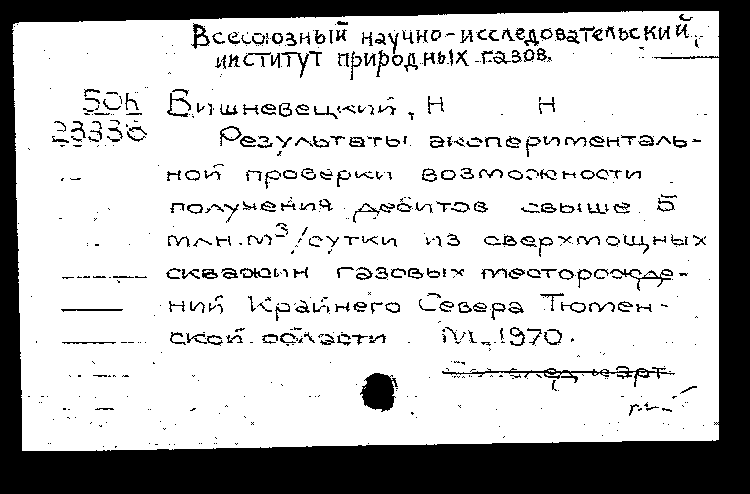 Всесоюзный научно-исследовательский
институт природных газов.
50h Вишневецкий, Н Н
23336 Результаты эксперименталь-
ной проверки возможности
получения дебитов свыше 5
млн.м³/сутки из сверхмощных
скважин газовых месторожде-
ний Крайнего Севера Тюмен-
ской области М., 1970.